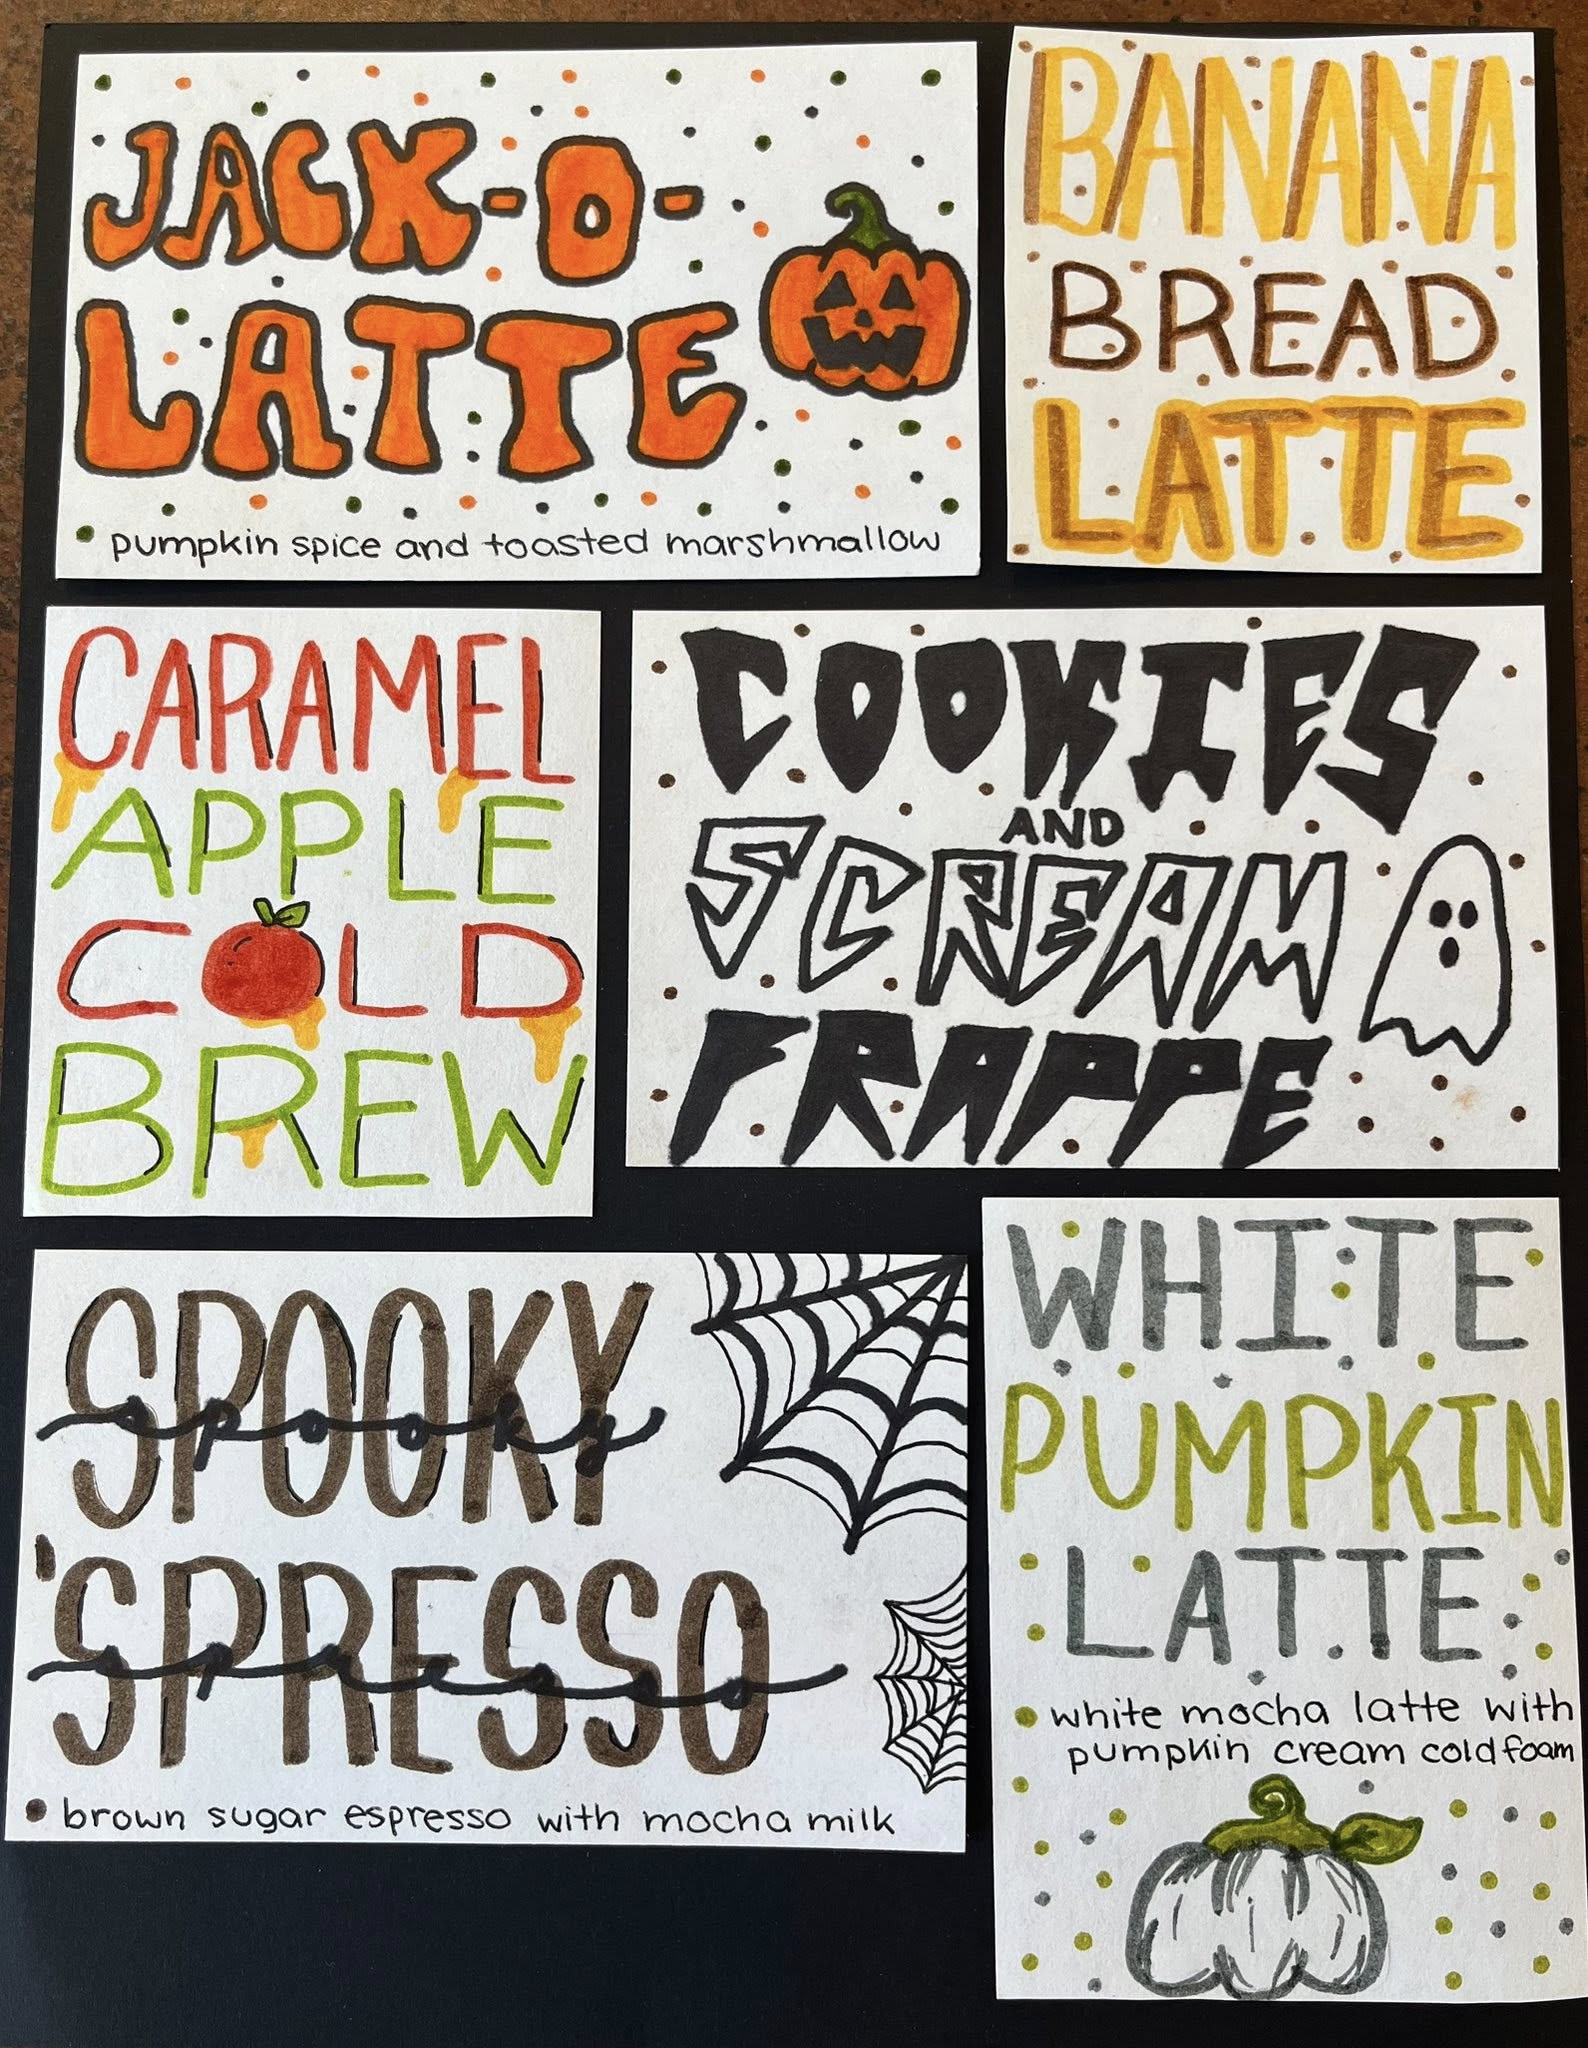 JACK-O-
LATTE
pumpkin spice and toasted marshmallow
BANANA
BREAD
LATTE
CARAMEL
APPLE
COLD
BREW
COOKIES
AND
SCREAM
FRAPPE
SPOOKY
spooky
'SPRESSO
spresso
brown sugar espresso with mocha milk
WHITE
PUMPKIN
LATTE
white mocha latte with
pumpkin cream cold foam